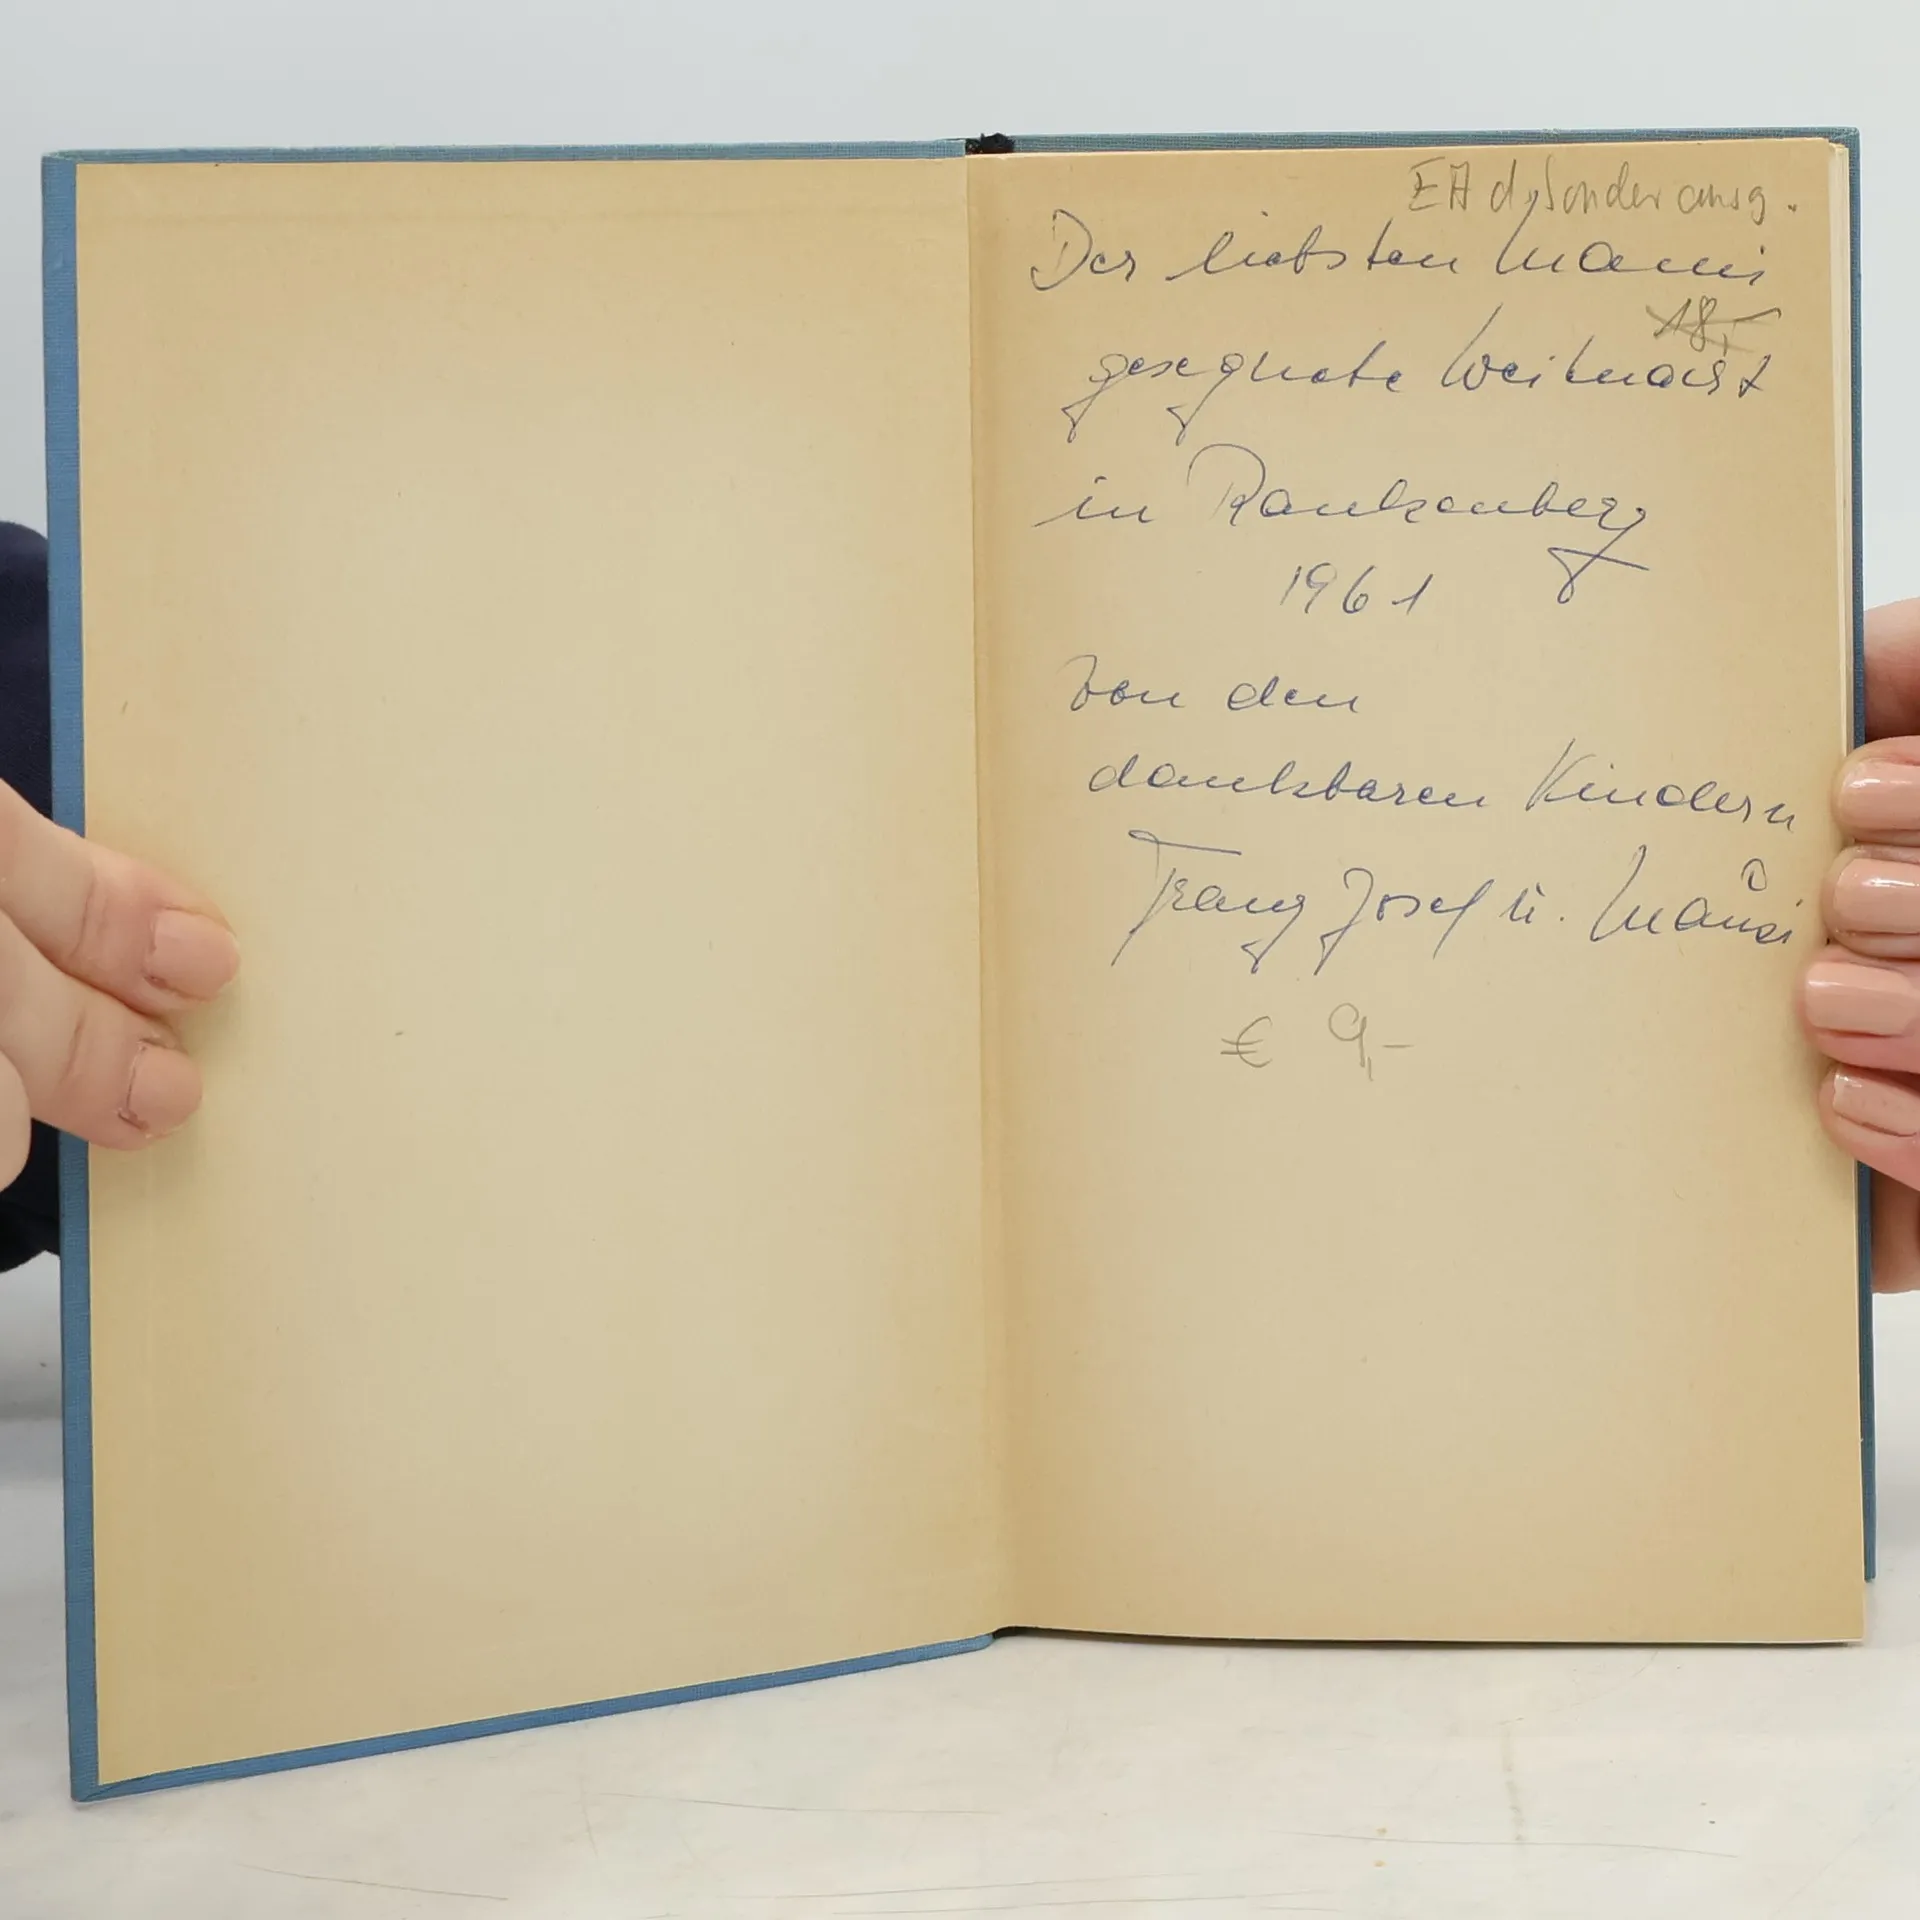 EA d. Sonderausg.
Der liebsten Mami
18,-
gesegnete Weihnacht
in Rankenberg
1961
Von den
dankbaren Kindern
Franz Josef u. Mausi
€ 9,-